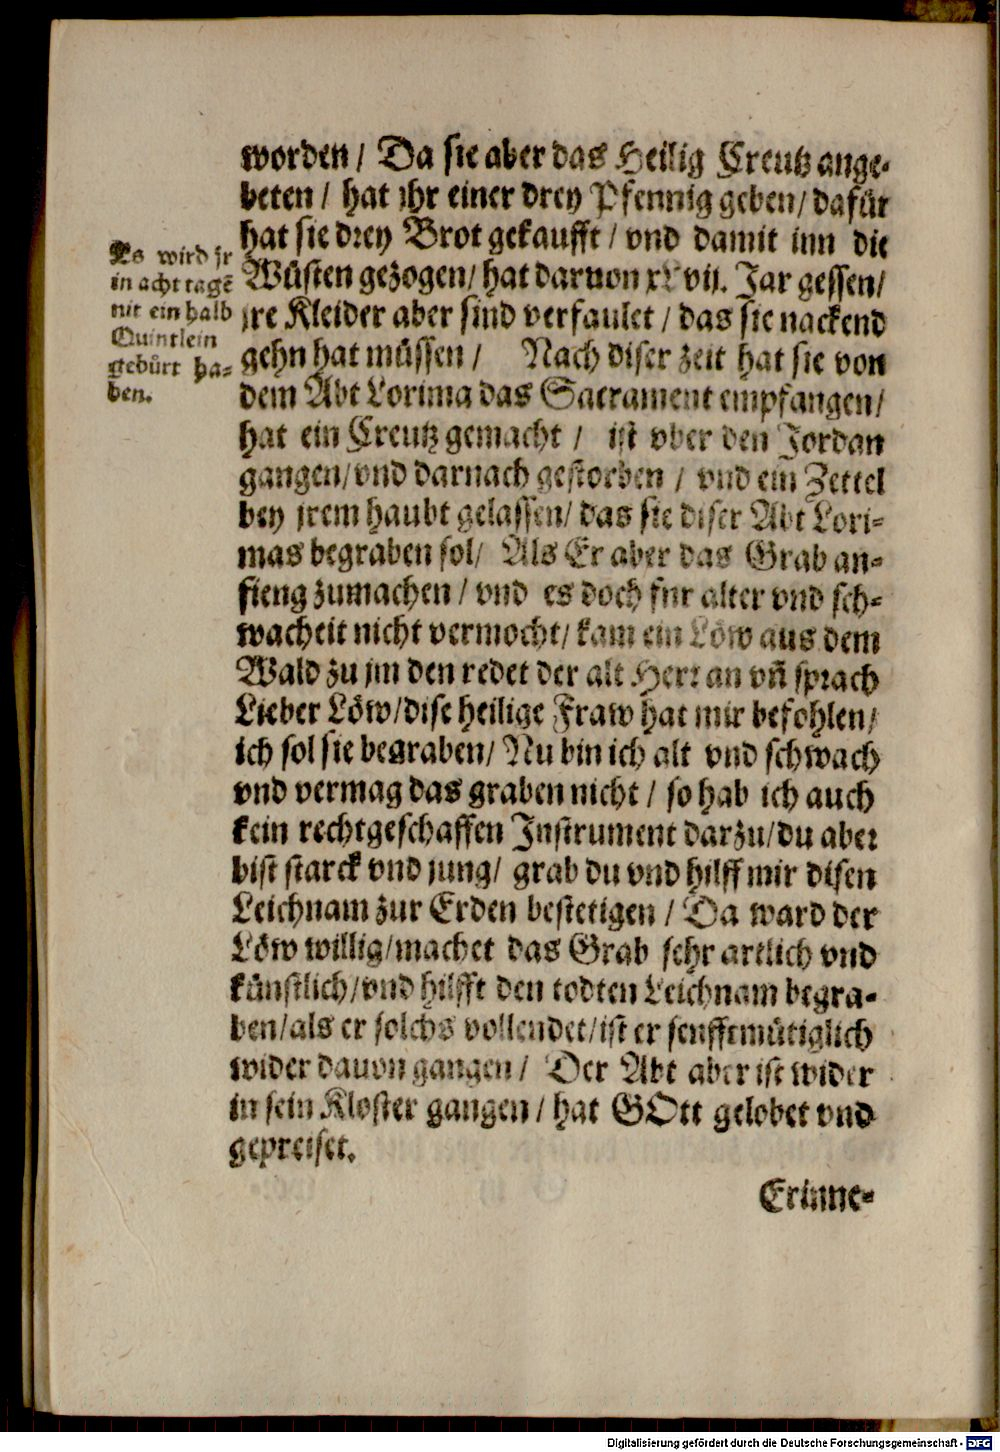 worden / Da sie aber das Heilig Creutz ange-
beten / hat jhr einer drey Pfennig geben / dafür
hat sie drey Brot gekaufft / vnd damit inn die
Wüsten gezogen / hat daruon xlvij. Jar gessen /
jre Kleider aber sind verfaulet / das sie nackend
gehn hat müssen / Nach diser zeit hat sie von
dem Abt Lorima das Sacrament empfangen /
hat ein Creutz gemacht / ist vber den Jordan
gangen / vnd darnach gestorben / vnd ein Zettel
bey jrem haubt gelassen / das sie diser Abt Lori-
mas begraben sol / Als Er aber das Grab an-
fieng zumachen / vnd es doch fur alter vnd sch-
wacheit nicht vermocht / kam ein Löw aus dem
Wald zu jm den redet der alt Herr an vñ sprach
Lieber Löw / dise heilige Fraw hat mir befohlen /
ich sol sie begraben / Nu bin ich alt vnd schwach
vnd vermag das graben nicht / so hab ich auch
kein rechtgeschaffen Instrument darzu / du aber
bist starck vnd jung / grab du vnd hilff mir disen
Leichnam zur Erden bestetigen / Da ward der
Löw willig / machet das Grab sehr artlich vnd
künstlich / vnd hilfft den todten Leichnam begra-
ben / als er solchs vollendet / ist er senfftmütiglich
wider dauon gangen / Der Abt aber ist wider
in sein Kloster gangen / hat GOtt gelobet vnd
gepreiset.
Erinne-
Es wird jr
in acht tagē
nit ein halb
Quintlein
gebürt ha-
ben.
Digitalisierung gefördert durch die Deutsche Forschungsgemeinschaft - DFG